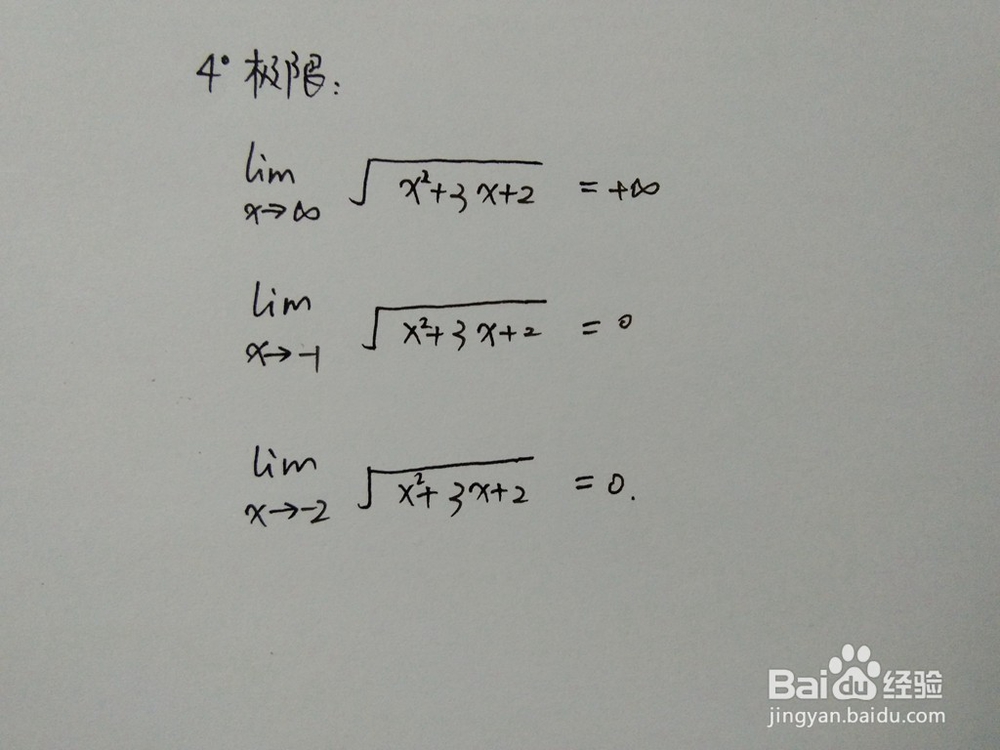 4° 极限:
lim x→∞ √(x²+3x+2) = +∞
lim x→-1 √(x²+3x+2) = 0
lim x→-2 √(x²+3x+2) = 0.
Baidu经验
jingyan.baidu.com